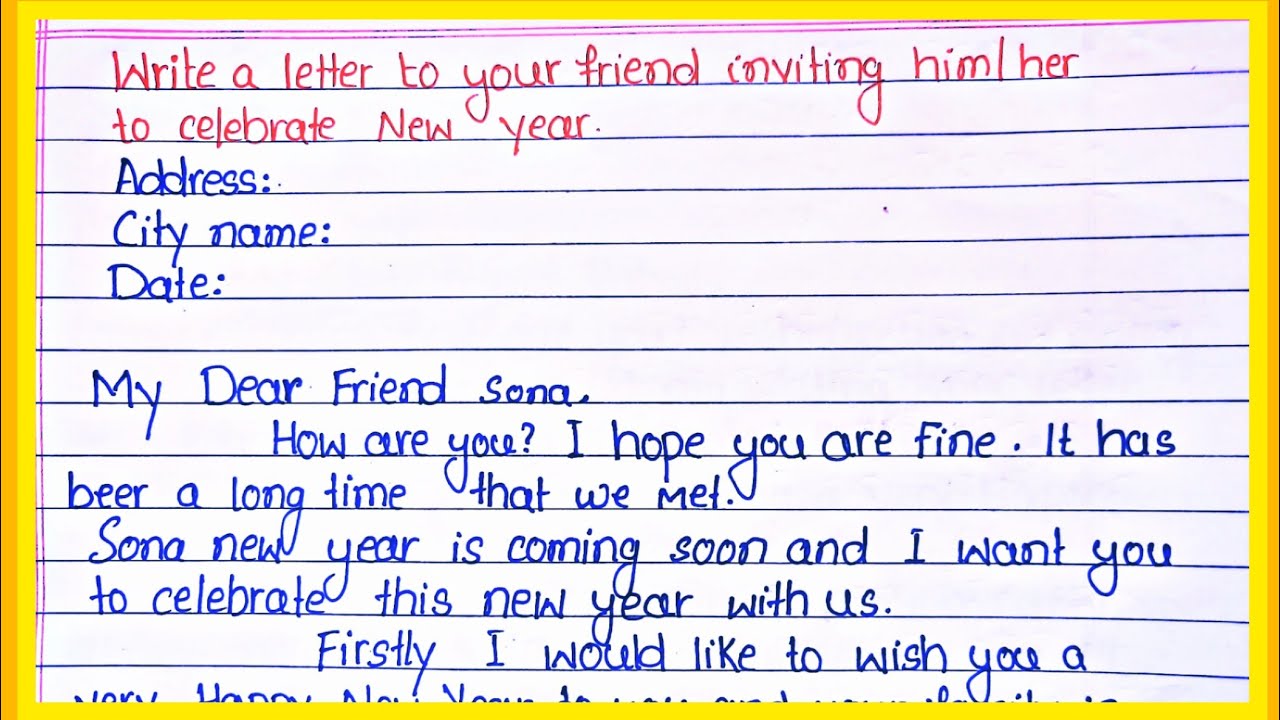 Write a letter to your friend inviting him/her
to celebrate New year.
Address:
City name:
Date:
My Dear Friend sona.
How are you? I hope you are fine. It has
beer a long time that we met.
Sona new year is coming soon and I want you
to celebrate this new year with us.
Firstly I would like to wish you a
very Happy New Year to you and your